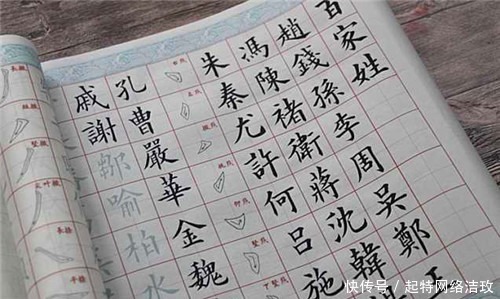 百家姓
趙錢孫李周吳鄭
馮陳褚衛蔣沈韓
朱秦尤許何吕施
孔曹嚴華金魏
戚謝鄒喻柏水
快传号 / 起特网络洁玫